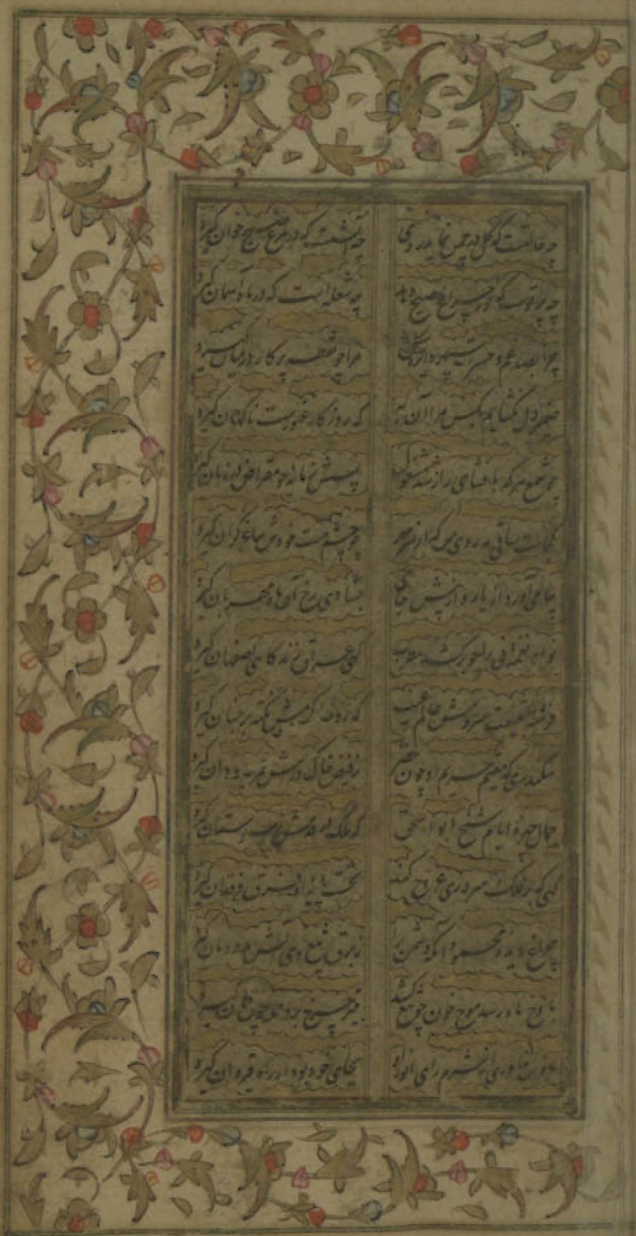 چه حالتست که گل در چمن نماید روی چه آتشست که در مرغ صبح خوان گیرد
چه پرتوست که نور چراغ صبح دهد چه شعله است که در ماه آسمان گیرد
چرا بصد غم و حسرت سپهر دایره شکل مرا چو نقطه پرکار در میان گیرد
ضمیر دل نگشایم بکس مرا آن به که روزکار غیورست ناکهان گیرد
چو شمع هر که بافشای راز شد مشغول بسش زمانه چو مقراض در زبان گیرد
کجاست ساقی مه روی من که از سر مهر چو چشم مست خودش ساغر گران گیرد
پیامی آورد از یار و در پیش جامی بشادی رخ آن ماه مهربان گیرد
نوای نغمه نی را چو برکشد مطرب کهی عراق زند کاهی اصفهان گیرد
فرشته حقیقت سروش عالم غیب که روضه کرمش نکته بر جنان گیرد
سکندری که مقیم حریم او چون خضر ز فیض خاک درش عمر جاودان گیرد
جمال چهره ایام شیخ ابو اسحق که ملک در قدمش زیب بوستان گیرد
کهی که بر فلک سروری عروج کند نخست پایه او فرق فرقدان گیرد
چراغ دیده محمود آنکه دشمن را ز برق تیغ وی آتش بدودمان گیرد
باوج ماه رسد موج خون چو تیغ کشد بتیر چرخ برد حمله چون کمان گیرد
عروس خاوری از شرم رای انور او بجای خود بود ار راه قیروان گیرد